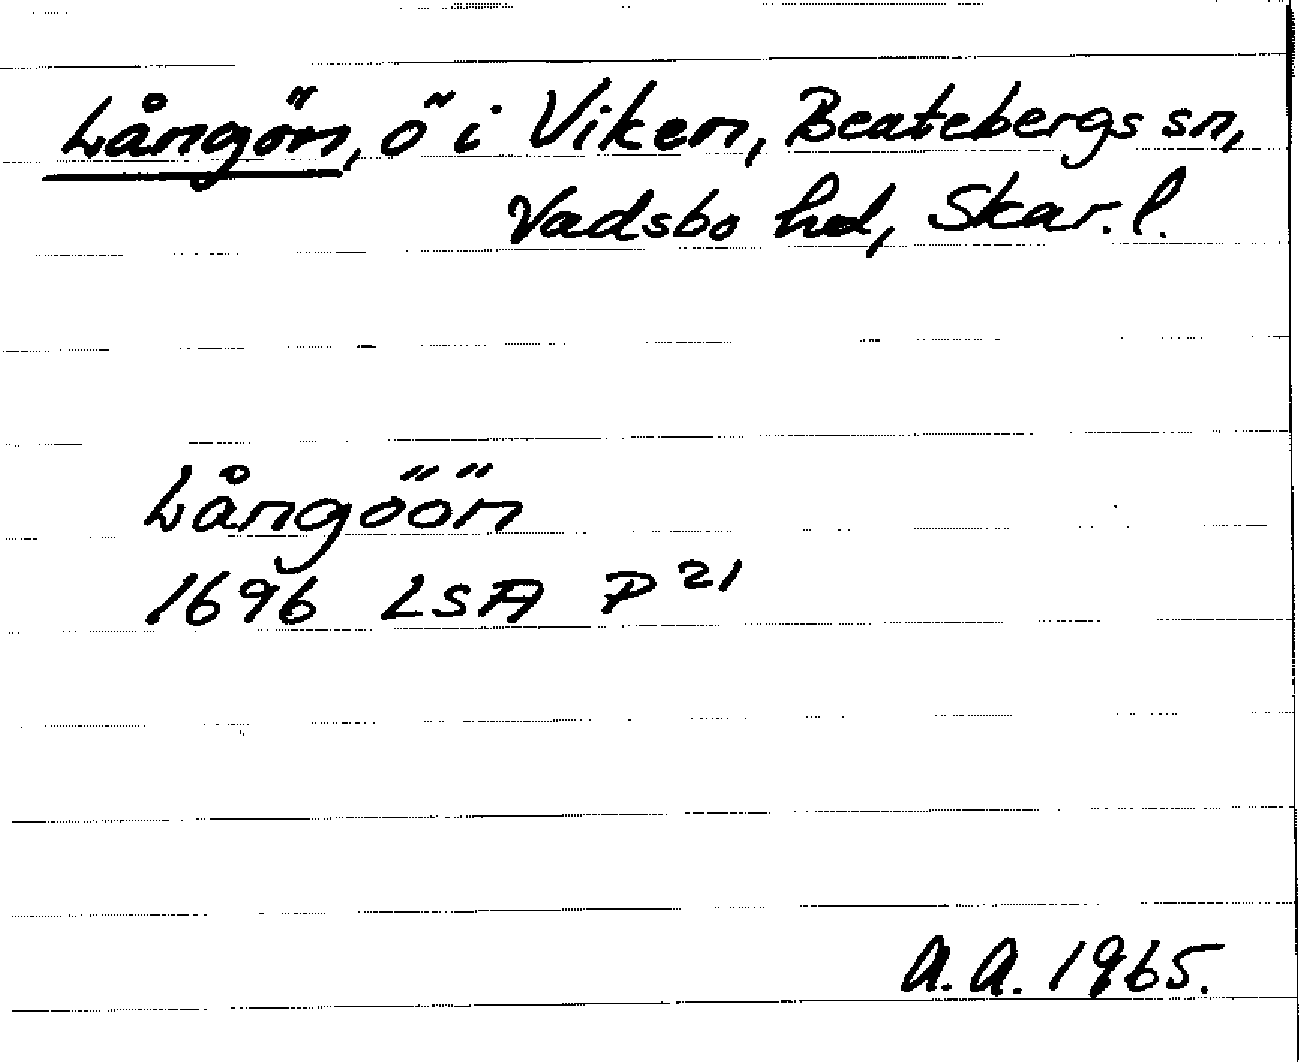 Långön, ö i Viken, Beatebergs sn,
Vadsbo hd, Skar. l.
Långöön
1696 LSA P 21
A.A. 1965.